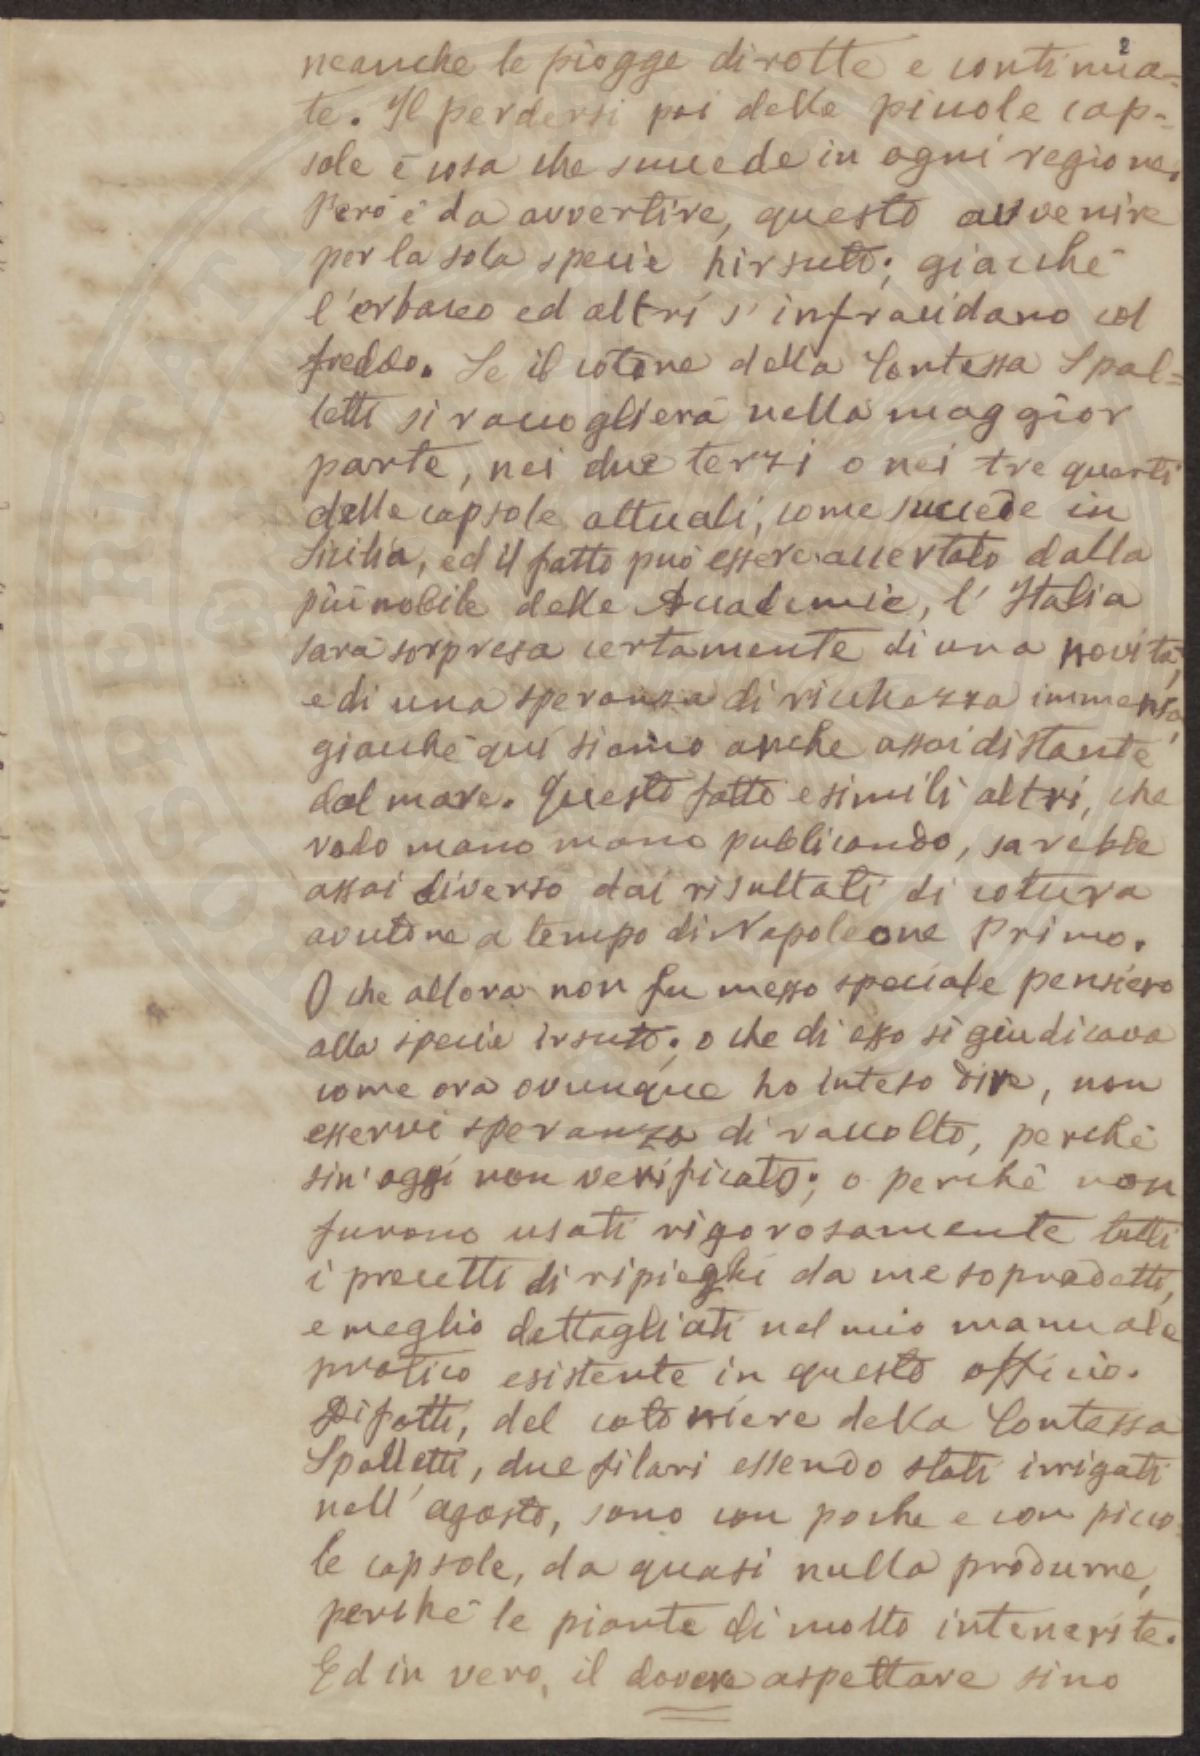 2
neanche le piogge dirotte e continua-
te. Il perdersi poi delle piccole cap-
sole è cosa che succede in ogni regione.
Però è da avvertire, questo avvenire
per la sola specie hirsuto; giacchè
l'erbaceo ed altri s'infracidano col
freddo. Se il cotone della Contessa Spal=
letti si raccoglierà nella maggior
parte, nei due terzi o nei tre quarti
delle capsole attuali, come succede in
Sicilia, ed il fatto può essere accertato dalla
più nobile delle Accademie, l'Italia
sarà sorpresa certamente di una novità,
e di una speranza di ricchezza immensa,
giacchè qui siamo anche assai distante
dal mare. Questo fatto e simili altri, che
vado mano mano publicando, sarebbe
assai diverso dai risultati di coltura
avutone a tempo di Napoleone Primo.
O che allora non fu messo speciale pensiero
alla specie irsuto; o che di esso si giudicava
come ora ovunque ho inteso dire, non
esservi speranza di raccolto, perchè
sin'oggi non verificato; o perchè non
furono usati rigorosamente tutti
i precetti di ripieghi da me sopradetti,
e meglio dettagliati nel mio manuale
pratico esistente in questo officio.
Difatti, del cotoniere della Contessa
Spalletti, due filari essendo stati irrigati
nell'agosto, sono con poche e con picco
le capsole, da quasi nulla produrre,
perchè le piante di molto intenerite.
Ed in vero, il dovere aspettare sino